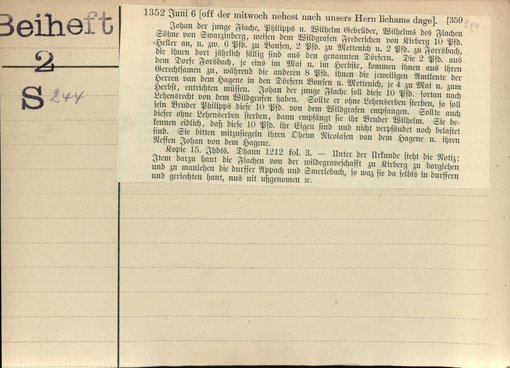 Beiheft
2
S 244
1352 Juni 6 [off der mitwoch nehest nach unsers Hern lichams dage]. [359
244
Johan der junge Flache, Philipps u. Wilhelm Gebrüder, Wilhelms des Flachen
Söhne von Swarzinberg, weisen dem Wildgrafen Frederichen von Kirberg 10 Pfd.
Heller an, u. zw. 6 Pfd. zu Bonsen, 2 Pfd. zu Mettenich u. 2 Pfd. zu Forsbach,
die ihnen dort jährlich fällig sind aus den genannten Dörfern. Die 2 Pfd. aus
dem Dorfe Forsbach, je eins im Mai u. im Herbste, kommen ihnen aus ihren
Gerechtsamen zu, während die anderen 8 Pfd. ihnen die jeweiligen Amtleute der
Herren von dem Hagene in den Dörfern Bonsen u. Mettenich, je 4 zu Mai u. zum
Herbst, entrichten müssen. Johan der junge Flache soll diese 10 Pfd. fortan nach
Lehensrecht von dem Wildgrafen haben. Sollte er ohne Lehenserben sterben, so soll
sein Bruder Philipps diese 10 Pfd. von dem Wildgrafen empfangen. Sollte auch
dieser ohne Lehenserben sterben, dann empfängt sie ihr Bruder Wilhelm. Sie be-
kennen eidlich, daß diese 10 Pfd. ihr Eigen sind und nicht verpfändet noch belastet
sind. Sie bitten mitzusiegeln ihren Oheim Nicolasen van dem Hagene u. ihren
Neffen Johan von dem Hagene.
Kopie 15. Jhdts. Dhaun 1212 fol. 3. — Unter der Urkunde steht die Notiz:
Item darzu hant die Flachen von der wildegraveschafft zu Kirberg zu borglehen
und zu manlehen die durffer Appach und Smerlebach, so waz sie da selbis in durffern
und gerichten hant, nus nit ußgenomen ꝛc.